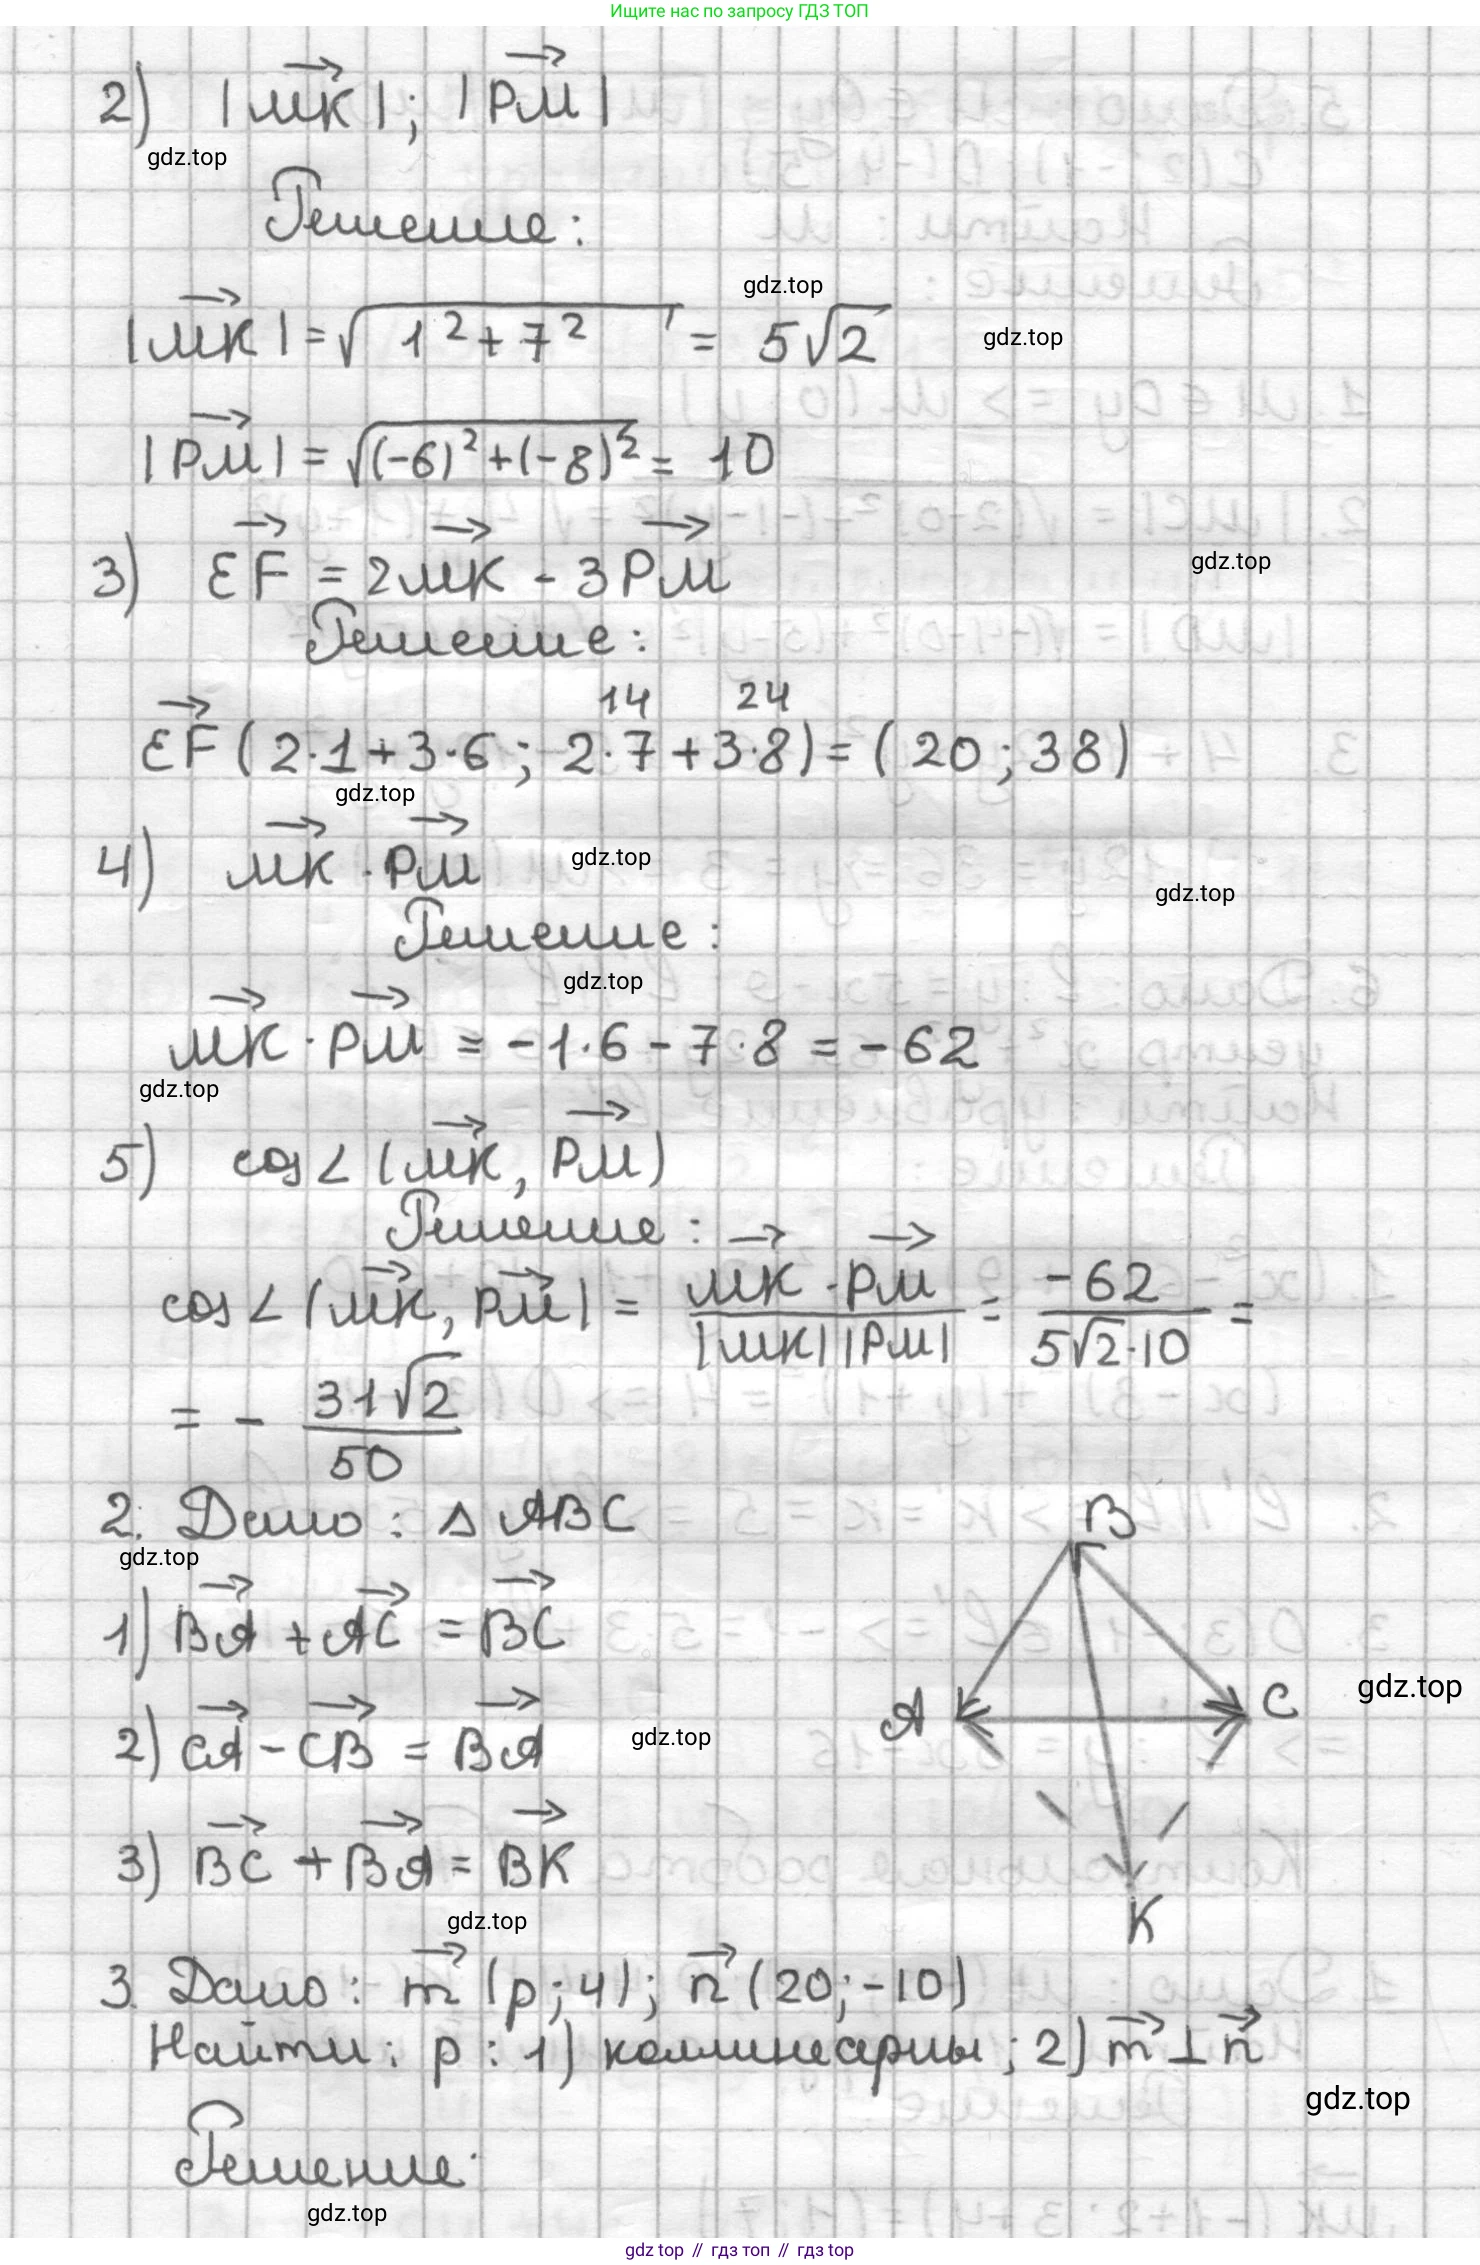 Ищите нас по запросу ГДЗ ТОП
2) |MK|; |PM|
gdz.top
Решение:
gdz.top
|MK| = √(1² + 7²) = 5√2
gdz.top
|PM| = √((-6)² + (-8)²) = 10
3) EF = 2MK - 3PM
gdz.top
Решение:
14 24
EF (2·1 + 3·6 ; 2·7 + 3·8) = (20 ; 38)
gdz.top
4) MK · PM
gdz.top
gdz.top
Решение:
gdz.top
MK · PM = -1·6 - 7·8 = -62
gdz.top
5) cos∠(MK, PM)
Решение:
cos∠(MK, PM) = MK · PM / |MK| |PM| = -62 / 5√2·10 =
= - 31√2 / 50
2. Дано: Δ ABC
gdz.top
1) BA + AC = BC
2) CA - CB = BA
gdz.top
3) BC + BA = BK
gdz.top
B
A
C
gdz.top
K
3. Дано: m (p; 4); n (20; -10)
Найти: p: 1) коллинеарны; 2) m ⊥ n
gdz.top
Решение:
gdz.top
gdz top // гдз топ // gdz top